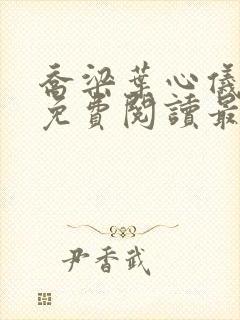 喬梁葉心儀
免費閱讀最
尹香武